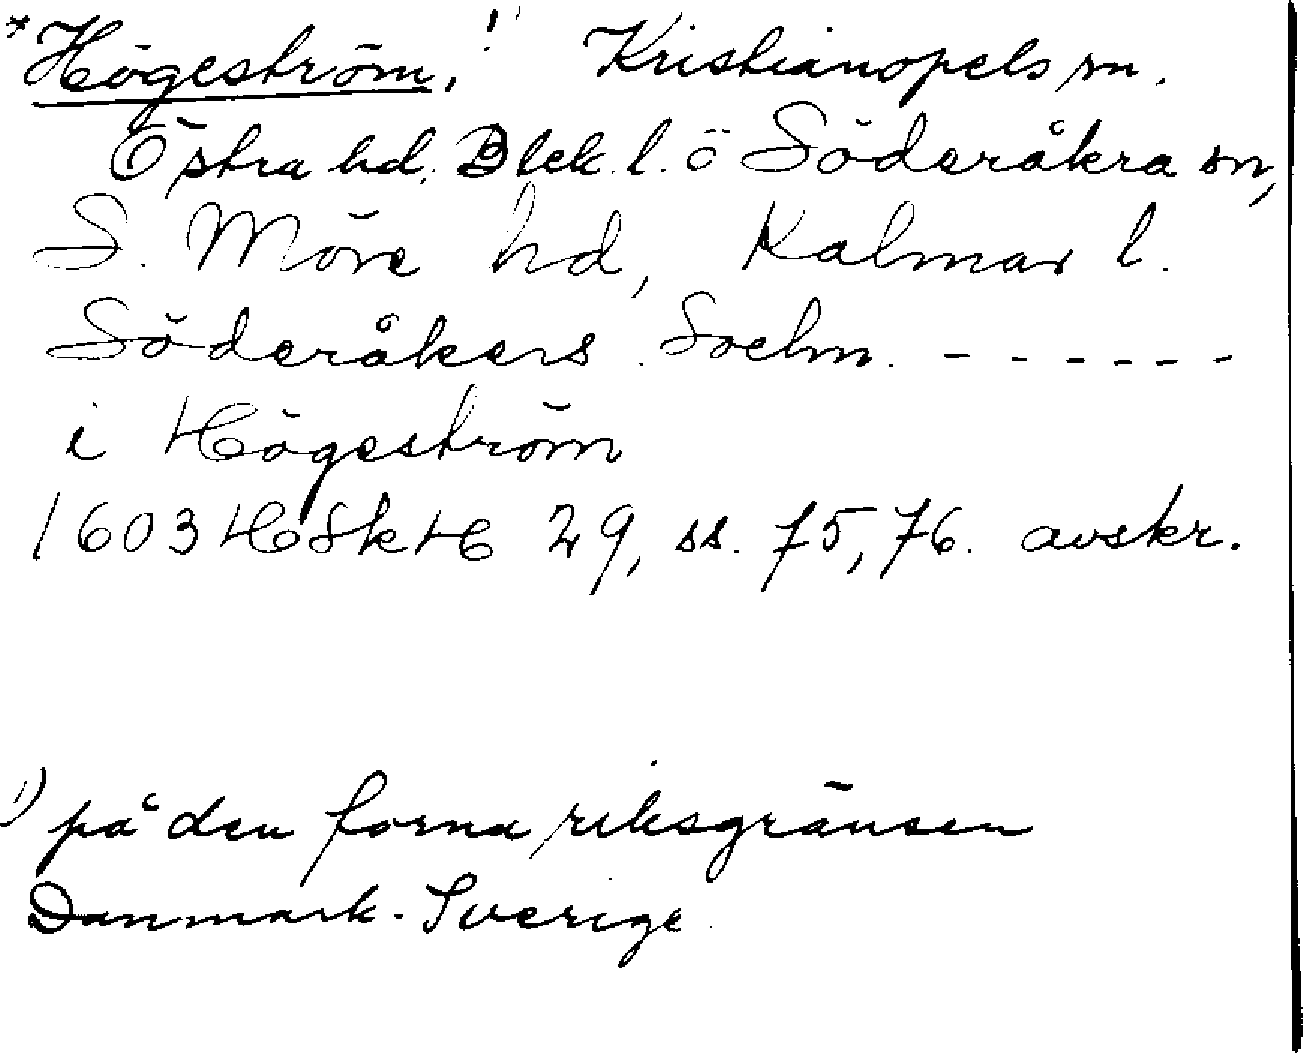 *Högeström, 1) Kristianopels sn.
Östra hd. Blek. l. ö Söderåkra sn,
S. Möre hd, Kalmar l.
Söderåkers Sochn. - - - - - -
i Högeström
1603 HSkH 29, ss. 75, 76. avskr.
1) på den forna riksgränsen
Danmark - Sverige